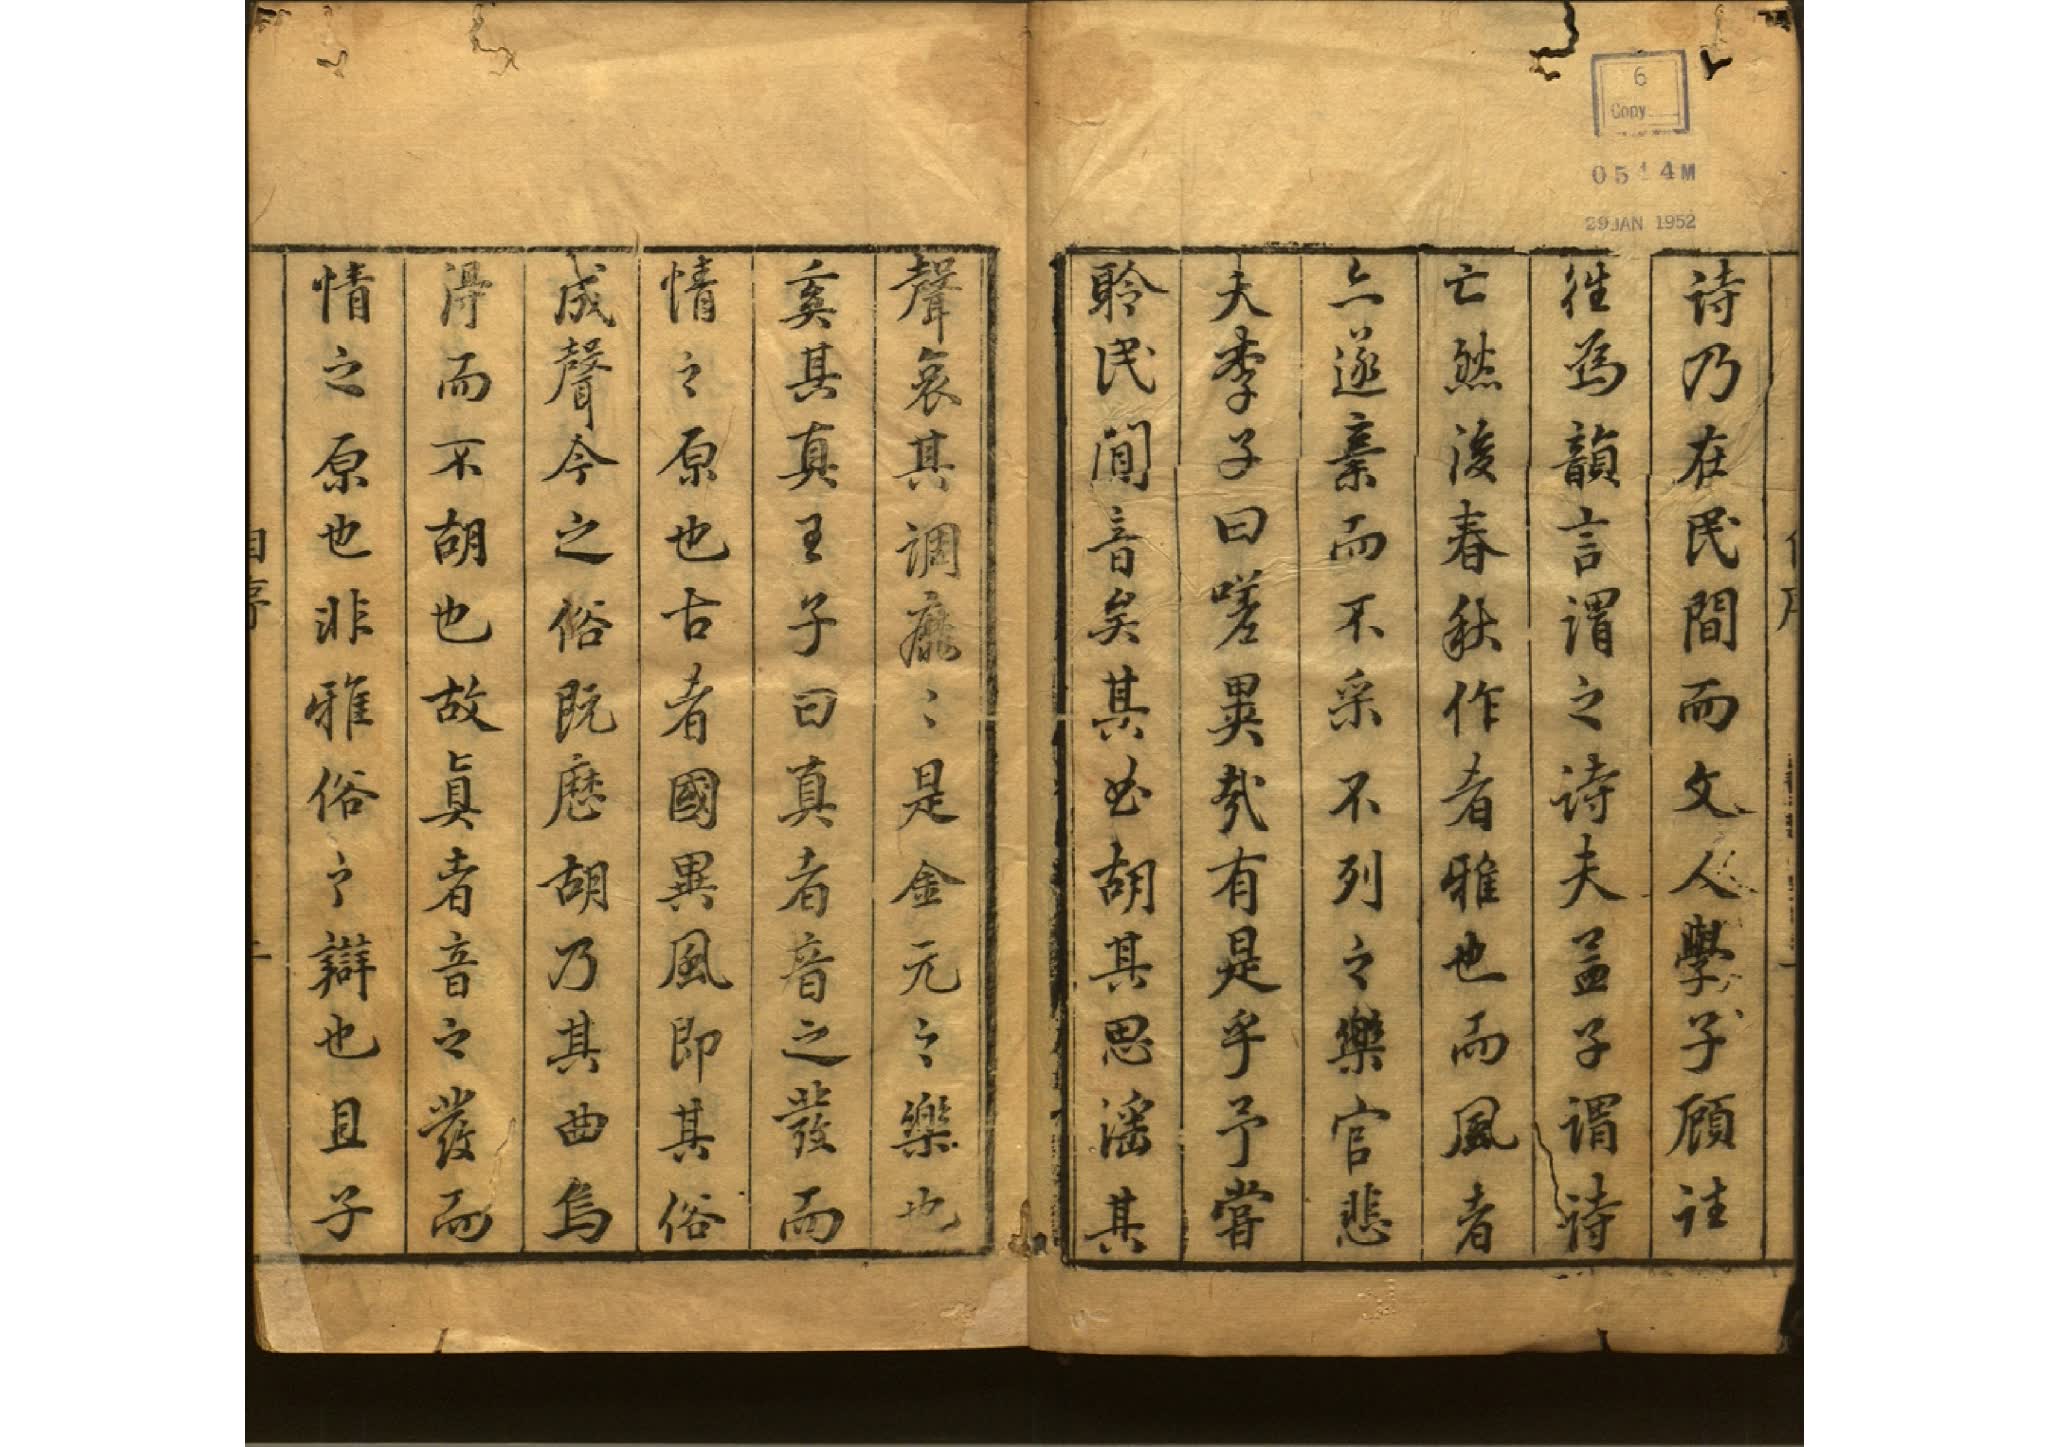 6
Copy
29 JAN 1952
詩乃在民間而文人學子顧往
徃為韻言謂之詩夫孟子謂詩
亡然後春秋作者雅也而風者
亦遂棄而不采不列之樂官悲
夫李子曰嗟異哉有是乎予嘗
聆民間音矣其曲胡其思淫其
聲哀其調靡〻是金元之樂也
奚其真王子曰真者音之發而
情之原也古者國異風即其俗
成聲今之俗既歷胡乃其曲烏
得而不胡也故眞者音之發而
情之原也非雅俗之辯也且子
自序